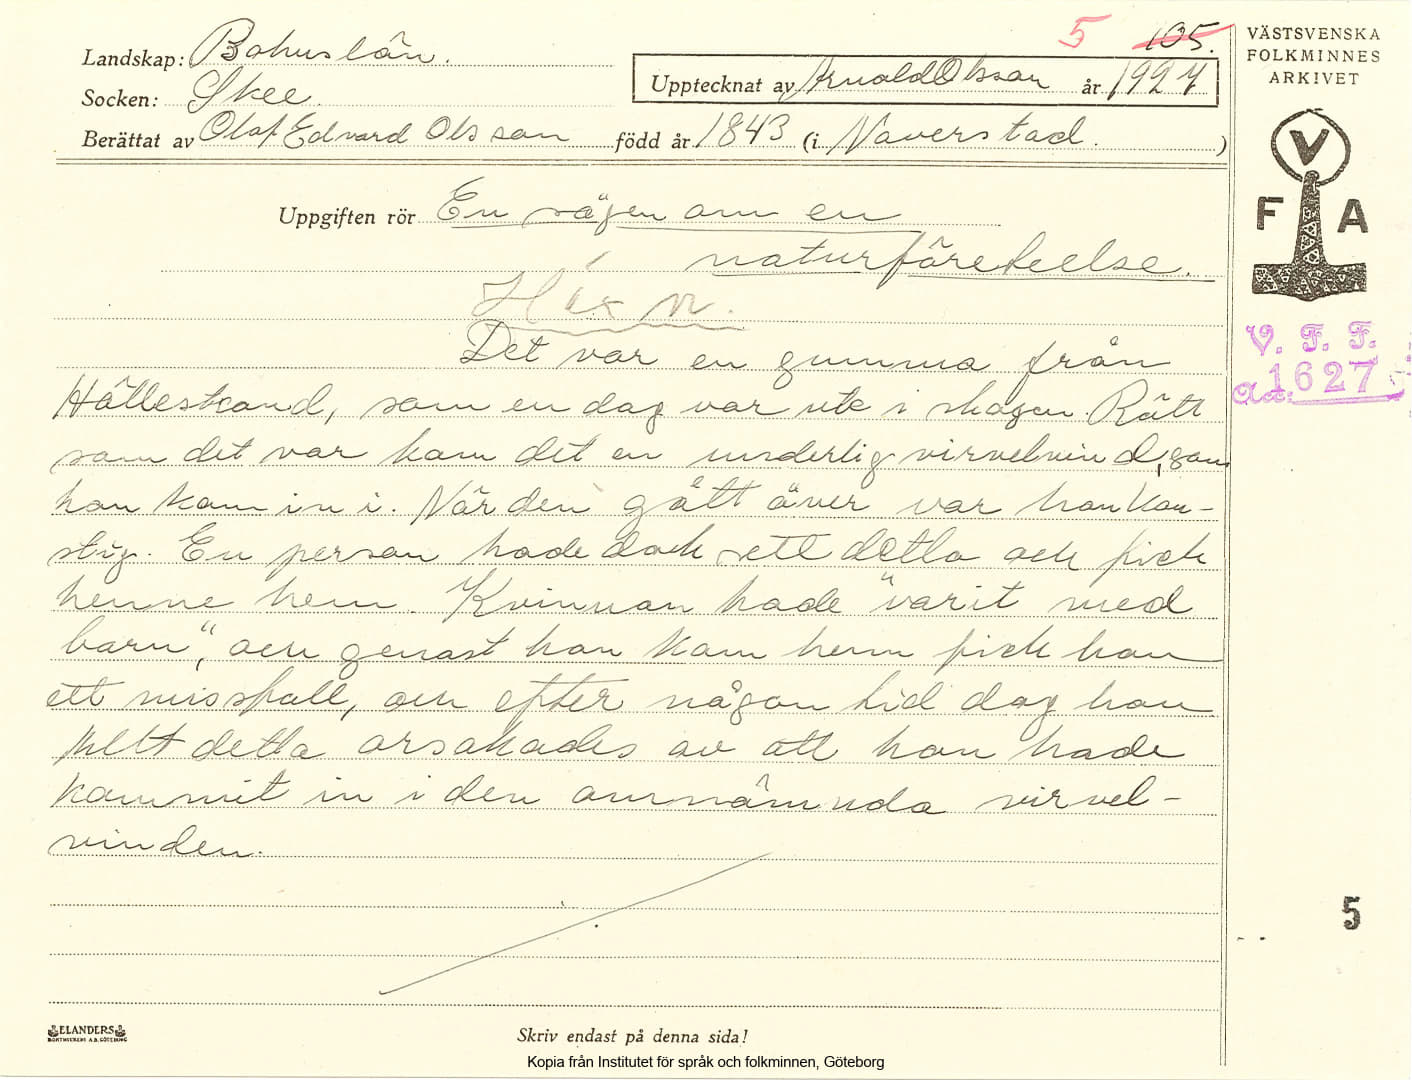 5 105.
Landskap: Bohuslän.
Socken: Skee.
Upptecknat av Arnold Olsson år 1927
Berättat av Olof Edvard Olsson född år 1843 (i Naverstad.)
Uppgiften rör En sägen om en
naturföreteelse.
Det var en gumma från
Hällestrand, som en dag var ute i skogen. Rätt
som det var kom det en underlig virvelvind, som
hon kom in i. När den gått över var hon kon-
stig. En person hade dock sett detta och fick
henne hem. Kvinnan hade "varit med
barn", och genast hon kom hem fick hon
ett missfall, och efter någon tid dog hon
allt detta orsakades av att hon hade
kommit in i den omnämnda virvel-
vinden.
VÄSTSVENSKA
FOLKMINNES
ARKIVET
V
F A
V. F. F.
Acc. 1627
5
ELANDERS
BOKTRYCKERI A.B. GÖTEBORG
Skriv endast på denna sida!
Kopia från Institutet för språk och folkminnen, Göteborg